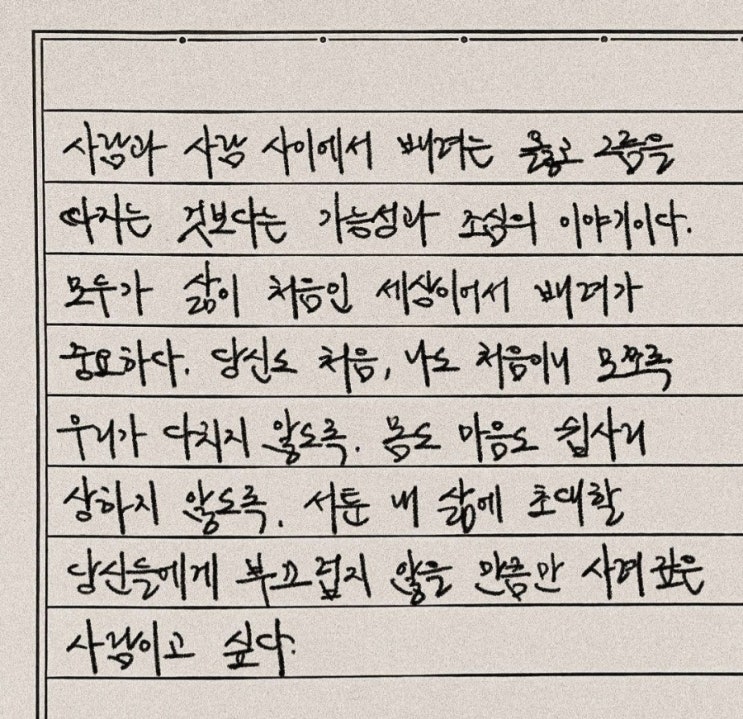 사람과 사람 사이에서 배려는 옳고 그름을
따지는 것보다는 가능성과 조심의 이야기이다.
모두가 삶이 처음인 세상이어서 배려가
중요하다. 당신도 처음, 나도 처음이니 모쪼록
우리가 다치지 않도록. 몸도 마음도 쉽사리
상하지 않도록. 서툰 내 삶에 초대할
당신들에게 부끄럽지 않을 만큼만 사려 깊은
사람이고 싶다.